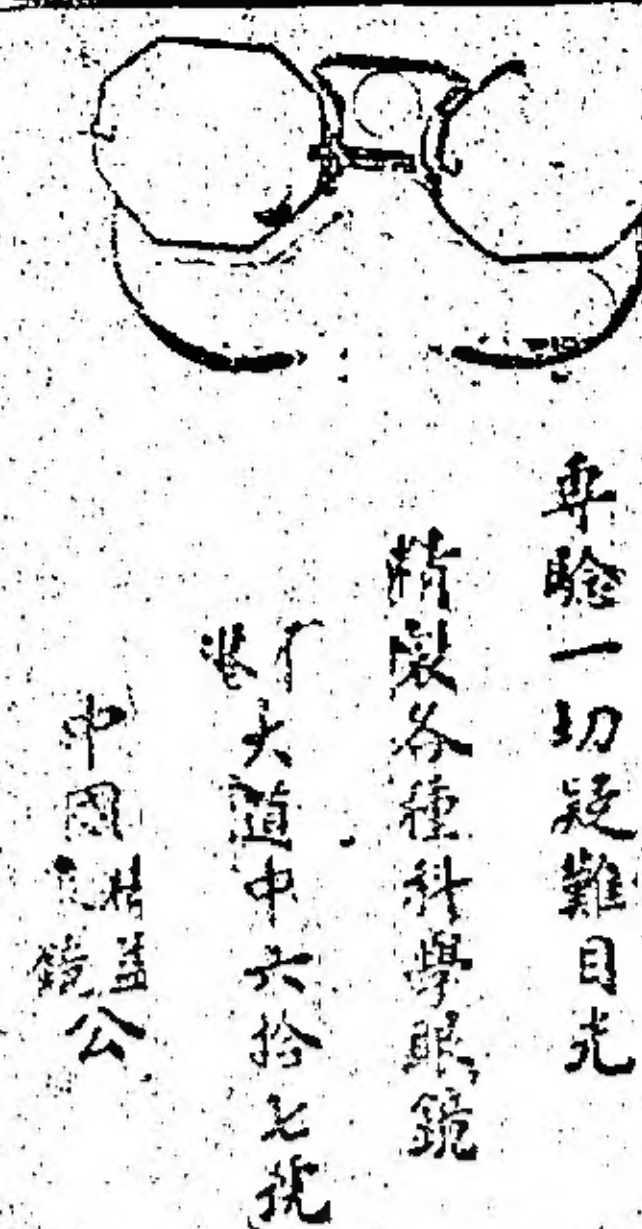 專驗一切疑難目光
精製各種科學眼鏡
大道中六拾七號
中國精益眼鏡公